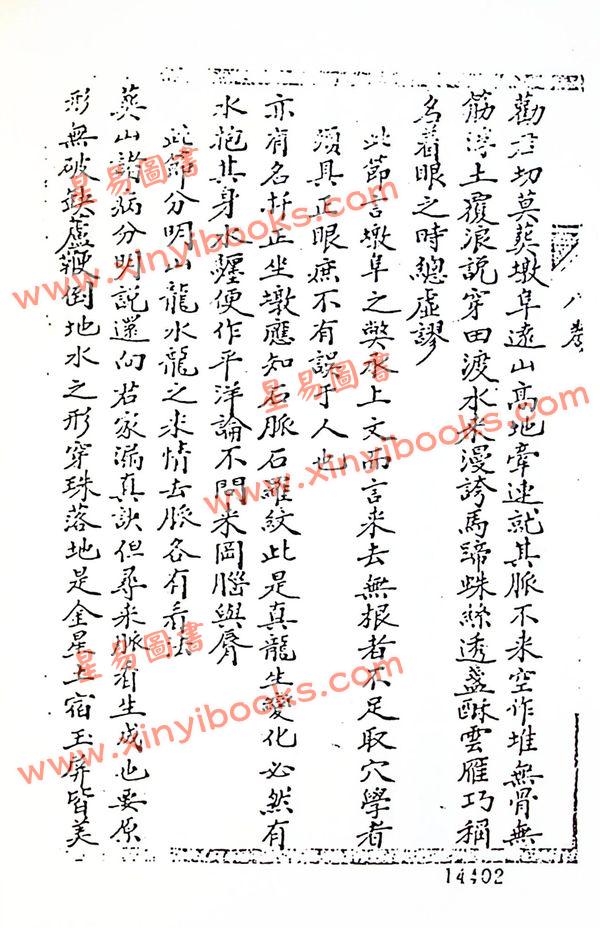 八卷
勸君切莫葬墩阜遠山高地牽連就其脈不来空作堆無骨無
筋浮土覆浪說穿田渡水来漫誇馬蹄蛛絲透盞酥雲雁巧稱
名着眼之時總虛謬
此節言墩阜之獘承上文而言来去無根者不足取穴學者
須具正眼庶不有誤于人也
亦有名扦正坐墩應知石脈石羅紋此是真龍生變化必然有
水抱其身水纒便作平洋論不問来岡腦與脣
此節分明山龍水龍之来情去脈各有看法
葬山諸病分明說還向君家漏真訣但尋来脈有生成也要原
形無破鈌蘆鞭倒地水之形穿珠落地是金星土宿玉屏皆美
14402
星易圖書
www.xinyibooks.com
星易圖書
www.xinyibooks.com
星易圖書
www.xinyibooks.com
星易圖書
www.xinyibooks.com